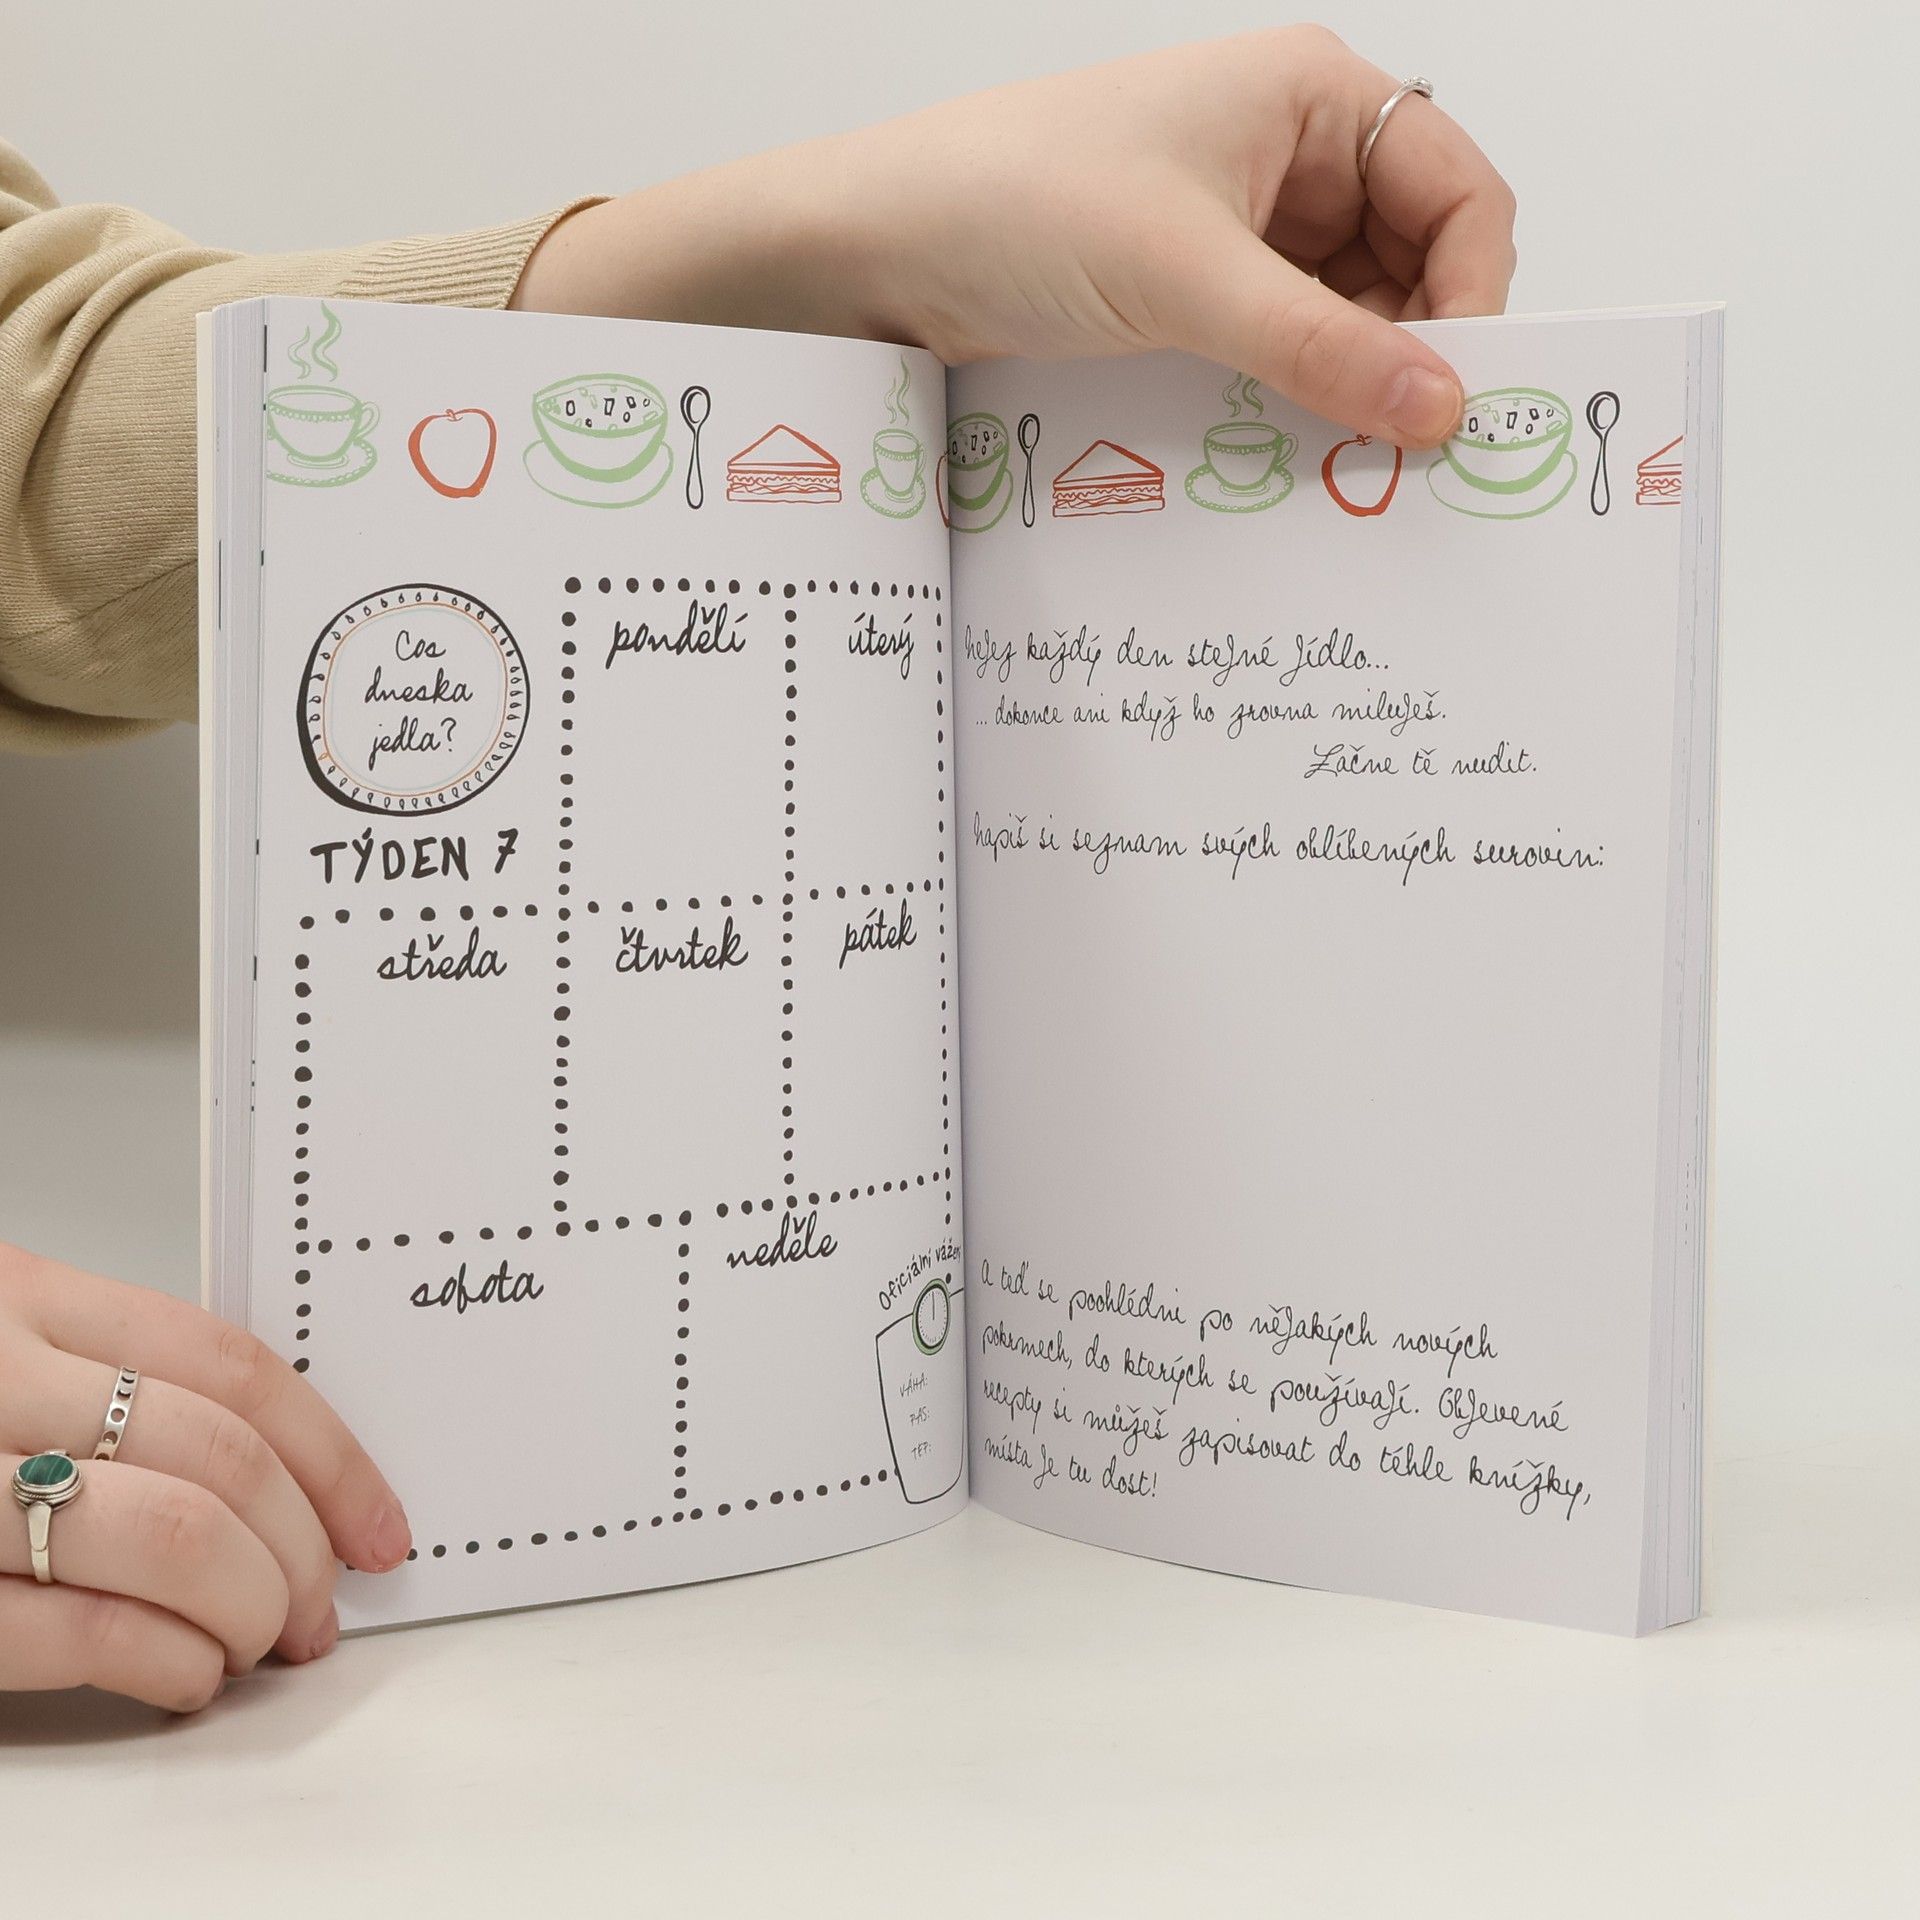 Cos
dneska
jedla?
TÝDEN 7
pondělí
úterý
středa
čtvrtek
pátek
sobota
neděle
Oficiální
VÁHA:
PAS:
TEP:
Nejez každý den stejné jídlo...
... dokonce ani když ho zrovna miluješ.
Začne tě nudit.
Napiš si seznam svých oblíbených surovin:
A teď se poohlédni po nějakých nových
pokrmech, do kterých se používají. Objevené
recepty si můžeš zapisovat do téhle knížky,
místa je tu dost!